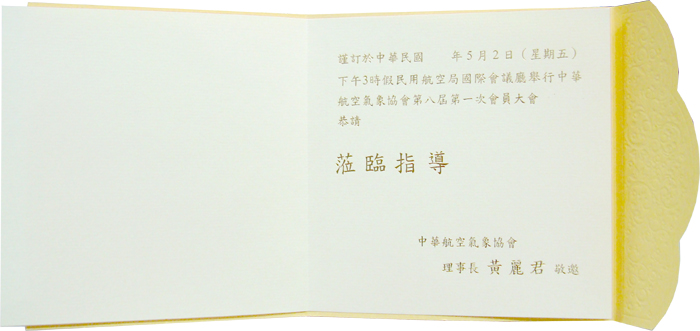 謹訂於中華民國　　年5月2日（星期五）
下午3時假民用航空局國際會議廳舉行中華
航空氣象協會第八屆第一次會員大會
恭請
蒞臨指導
中華航空氣象協會
理事長 黃麗君 敬邀